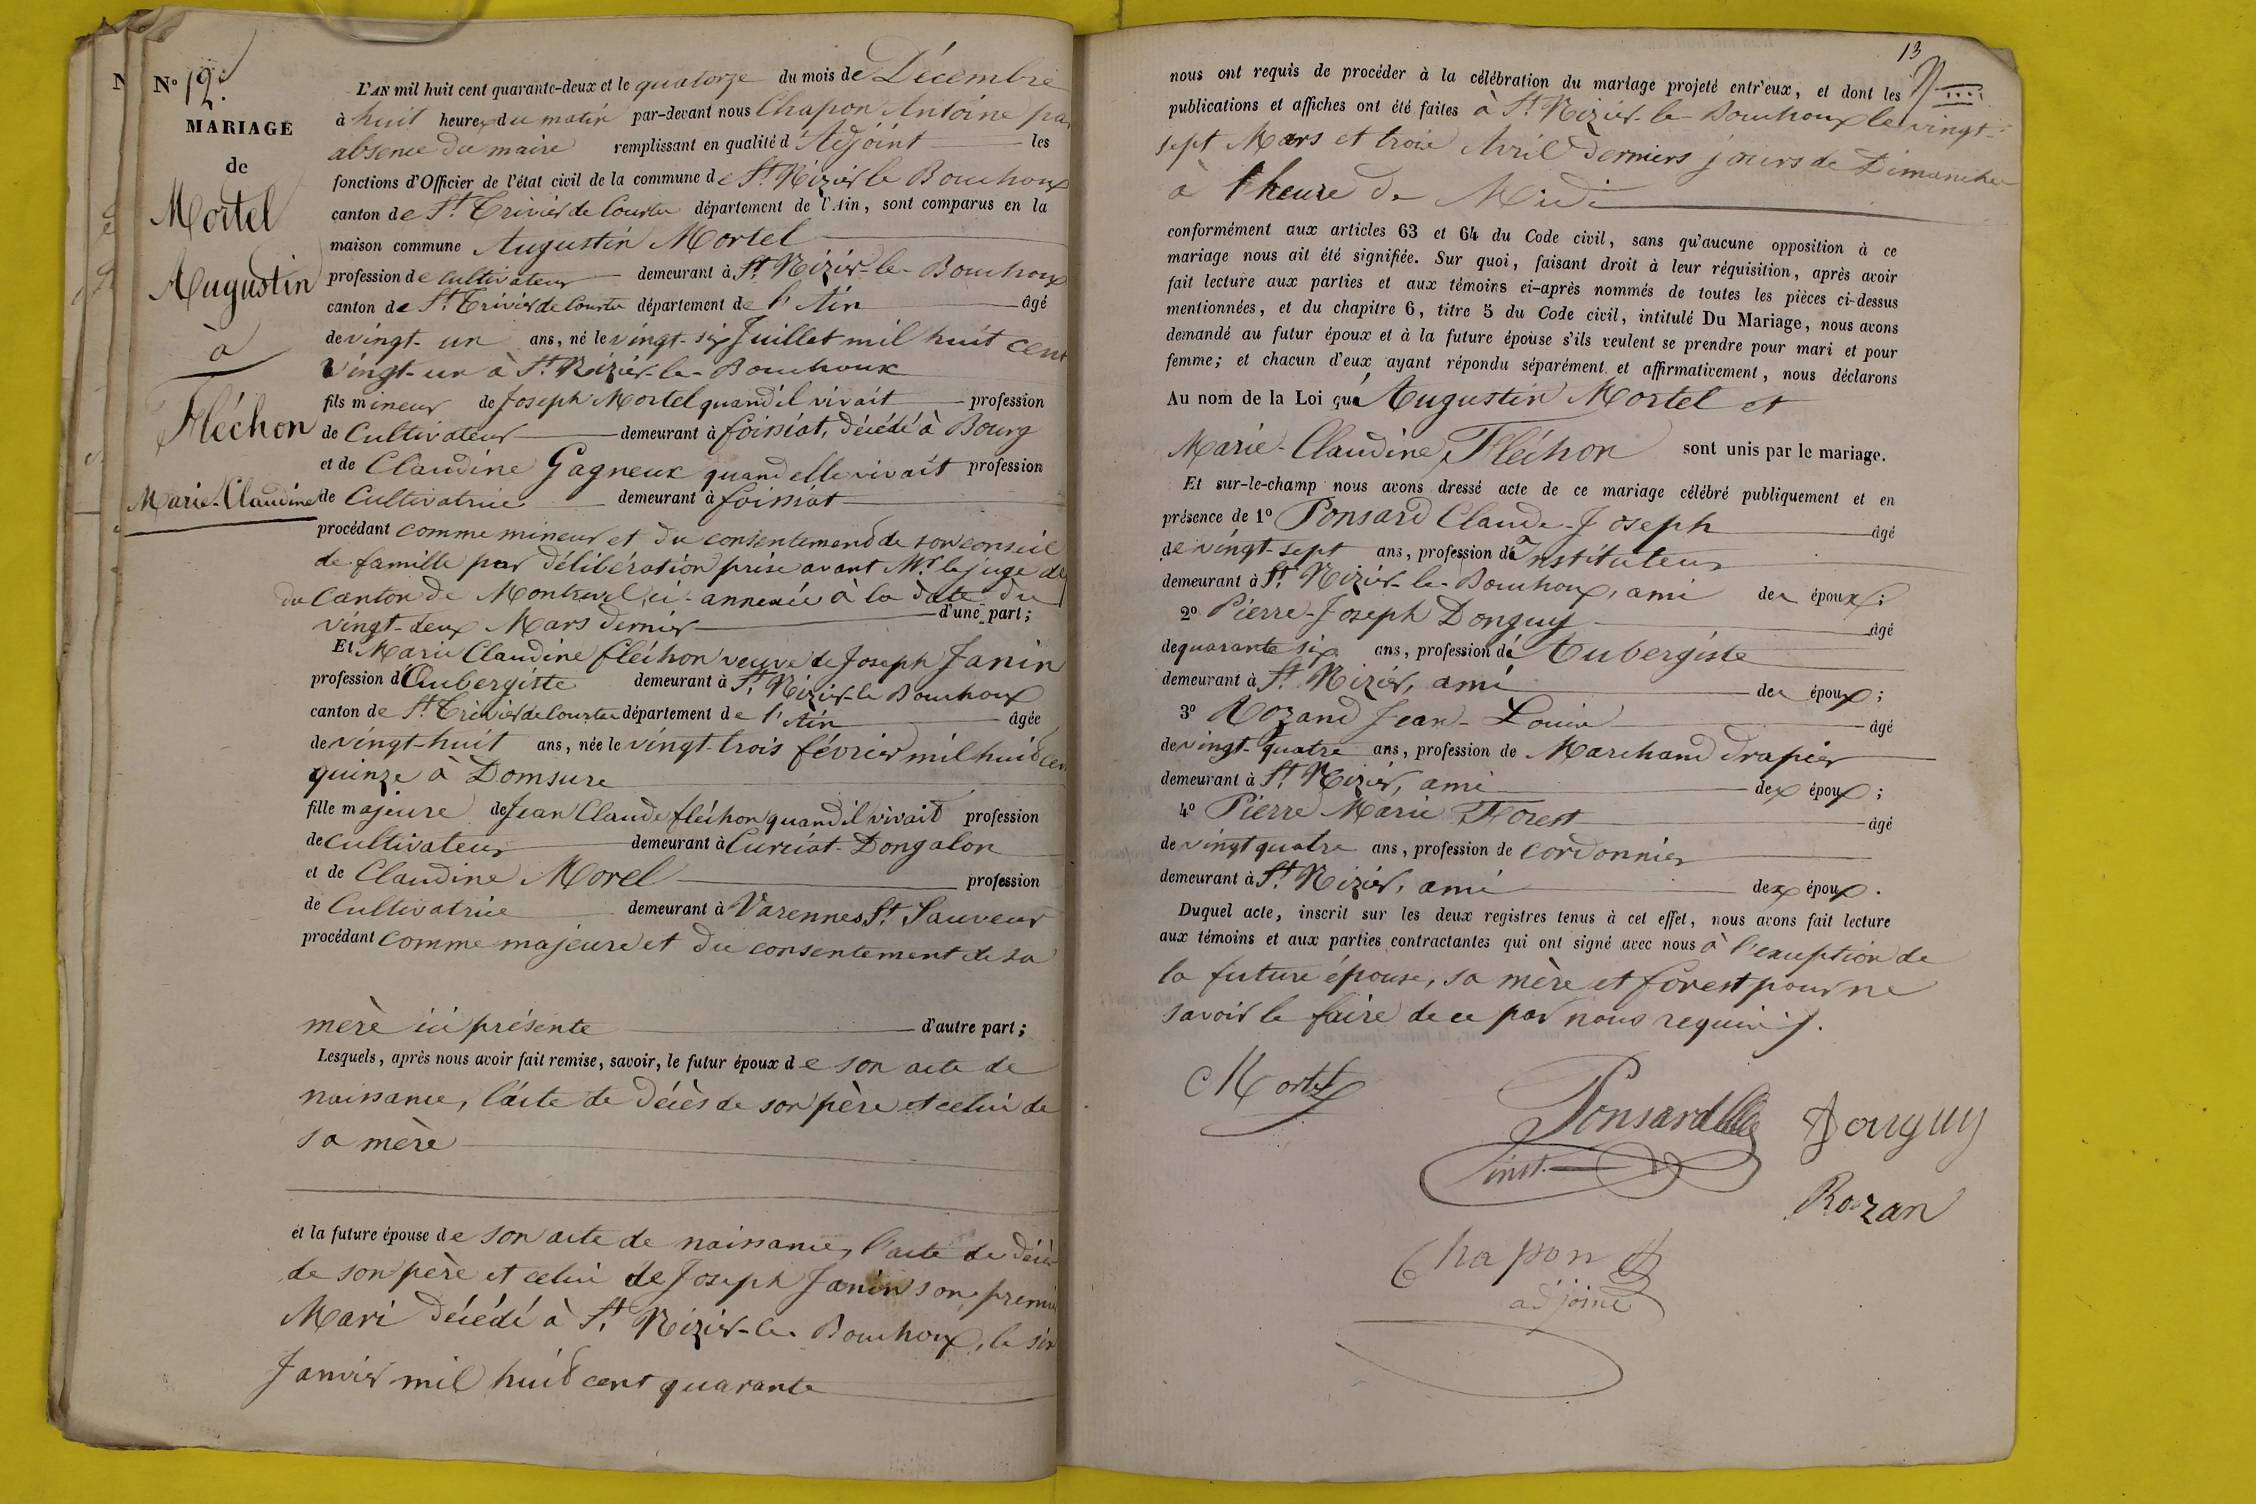 No 12.e
MARIAGE
de
Mortel
Augustin
à
Fléchon
Marie-Claudine
L'AN mil huit cent quarante-deux et le quatorze du mois de Décembre
à huit heures du matin par-devant nous Chapon Antoine par
absence du maire remplissant en qualité d'Adjoint les
fonctions d'Officier de l'état civil de la commune de St Nizier le Bouchoux
canton de St Trivier de Courtes département de l'Ain, sont comparus en la
maison commune Augustin Mortel
profession de cultivateur demeurant à St Nizier-le-Bouchoux
canton de St Trivier de Courtes département de l'Ain âgé
de vingt-un ans, né le vingt-six Juillet mil huit cent
vingt-un à St Nizier-le-Bouchoux
fils mineur de Joseph Mortel quand il vivait profession
de Cultivateur demeurant à foissiat, décédé à Bourg
et de Claudine Gagneux quand elle vivait profession
de Cultivatrice demeurant à foissiat
procédant comme mineur et du consentement de son conseil
de famille par délibération prise avant Mr le juge de
du Canton de Montrevel, ci-annexée à la date du
vingt-deux Mars dernier d'une part;
Et Marie Claudine fléchon veuve de Joseph Janin
profession d'Aubergiste demeurant à St Nizier-le Bouchoux
canton de St Trivier de Courtes département de l'Ain âgée
de vingt-huit ans, née le vingt-trois février mil huit cen
quinze à Domsure
fille majeure de Jean Claude fléchon quand il vivait profession
de cultivateur demeurant à Curciat-Dongalon
et de Claudine Morel profession
de Cultivatrice demeurant à Varennes St Sauveur
procédant comme majeure et du consentement de sa
mère ici présente d'autre part;
Lesquels, après nous avoir fait remise, savoir, le futur époux de son acte de
naissance, l'acte de décès de son père et celui de
sa mère
et la future épouse de son acte de naissance, l'acte de décès
de son père et celui de Joseph Janin son premier
Mari décédé à St Nizier-le-Bouchoux, le six
Janvier mil huit cent quarante
13
nous ont requis de procéder à la célébration du mariage projeté entr'eux, et dont les
publications et affiches ont été faites à St Nizier-le-Bouchoux les vingt-
sept Mars et trois Avril derniers jours de Dimanche
à l'heure de Midi
conformément aux articles 63 et 64 du Code civil, sans qu'aucune opposition à ce
mariage nous ait été signifiée. Sur quoi, faisant droit à leur réquisition, après avoir
fait lecture aux parties et aux témoins ci-après nommés de toutes les pièces ci-dessus
mentionnées, et du chapitre 6, titre 5 du Code civil, intitulé Du Mariage, nous avons
demandé au futur époux et à la future épouse s'ils veulent se prendre pour mari et pour
femme; et chacun d'eux ayant répondu séparément et affirmativement, nous déclarons
Au nom de la Loi qué Augustin Mortel et
Marie-Claudine Fléchon sont unis par le mariage.
Et sur-le-champ nous avons dressé acte de ce mariage célébré publiquement et en
présence de 1o Ponsard Claude-Joseph âgé
de vingt-sept ans, profession d'Instituteur
demeurant à St Nizier-le-Bouchoux, ami des époux;
2o Pierre-Joseph Donguy âgé
de quarante six ans, profession d'Aubergiste
demeurant à St Nizier, ami des époux;
3o Rozand Jean-Louis âgé
de vingt-quatre ans, profession de Marchand drapier
demeurant à St Nizier, ami des époux;
4o Pierre Marie Forest âgé
de vingt quatre ans, profession de cordonnier
demeurant à St Nizier, ami des époux.
Duquel acte, inscrit sur les deux registres tenus à cet effet, nous avons fait lecture
aux témoins et aux parties contractantes qui ont signé avec nous à l'exception de
la future épouse, sa mère et forest pour ne
savoir le faire de ce par nous requis.
Mortel
Ponsard
Donguy
inst.
Rozan
Chapon
adjoint